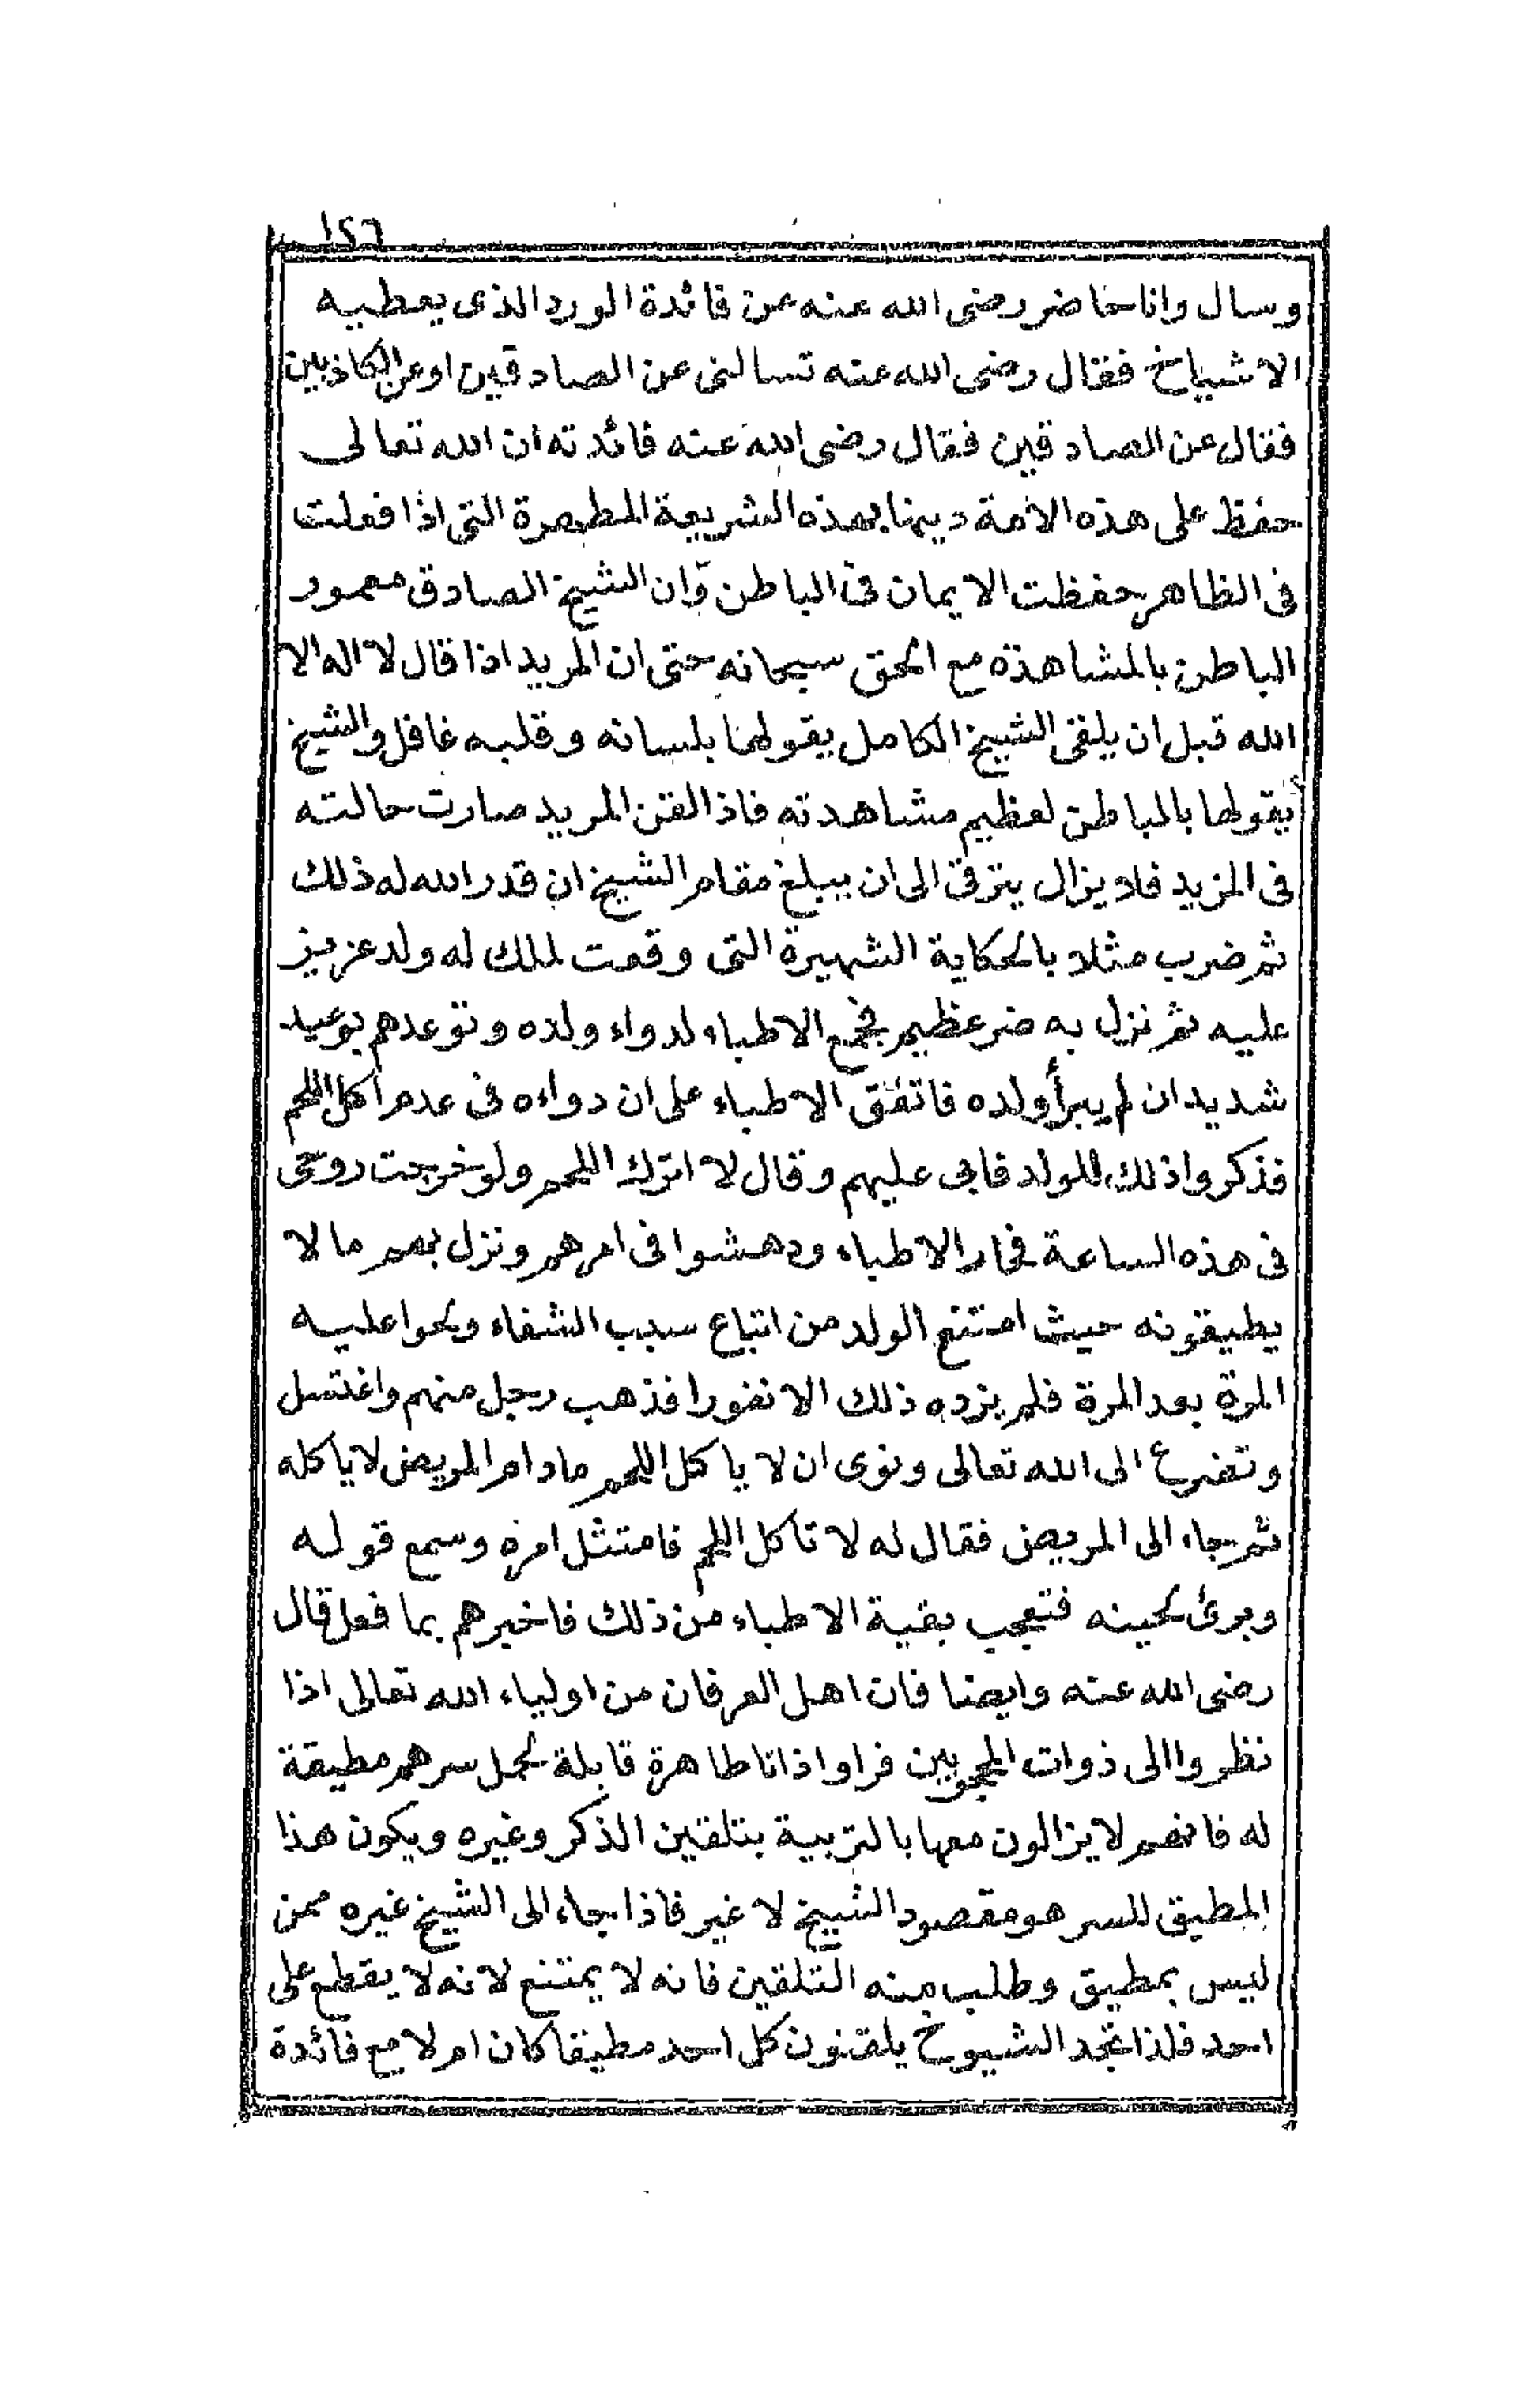 ١٢٦
وسال وانا حاضر رضى الله عنه عن فائدة الورد الذى يعطيه
الاشياخ فقال رضى الله عنه تسالنى عن الصادقين او عن الكاذبين
فقال عن الصادقين فقال رضى الله عنه فائدته ان الله تعالى
حفظ على هذه الأمة دينها بهذه الشريعة المطهرة التى اذا فعلت
فى الظاهر حفظت الايمان فى الباطن وان الشيخ الصادق معمور
الباطن بالمشاهدة مع الحق سبحانه حتى ان المريد اذا قال لا اله الا
الله قبل ان يلقى الشيخ الكامل يقولها بلسانه وقلبه غافل والشيخ
يقولها بالباطن لعظيم مشاهدته فاذا لقن المريد صارت حالته
فى المزيد فلا يزال يترقى الى ان يبلغ مقام الشيخ ان قدر الله له ذلك
ثم ضرب مثلا بالحكاية الشهيرة التى وقعت لملك له ولد عزيز
عليه ثم نزل به ضر عظيم فجمع الاطباء لدواء ولده وتوعدهم بوعيد
شديد ان لم يبرأ ولده فاتفق الاطباء على ان دواءه فى عدم اكل اللحم
فذكروا ذلك للولد فابى عليهم وقال لا اترك اللحم ولو خرجت روحى
فى هذه الساعة فحار الاطباء ودهشوا فى امرهم ونزل بهم ما لا
يطيقونه حيث امتنع الولد من اتباع سبب الشفاء ولحوا عليه
المرة بعد المرة فلم يزده ذلك الا نفورا فذهب رجل منهم واغتسل
وتضرع الى الله تعالى ونوى ان لا ياكل اللحم مادام المريض لا ياكله
ثم جاء الى المريض فقال له لا تاكل اللحم فامتثل امره وسمع قوله
وبرئ لحينه فتعجب بقية الاطباء من ذلك فاخبرهم بما فعل قال
رضى الله عنه وايضا فان اهل العرفان من اولياء الله تعالى اذا
نظروا الى ذوات المحجوبين فراوا ذاتا طاهرة قابلة لحمل سرهم مطيقة
له فانهم لا يزالون معها بالتربية بتلقين الذكر وغيره ويكون هذا
المطيق للسر هو مقصود الشيخ لا غير فاذا جاء الى الشيخ غيره ممن
ليس بمطيق وطلب منه التلقين فانه لا يمتنع لانه لا يقطع على
احد فلذا تجد الشيوخ يلقنون كل احد مطيقا كان ام لا مع فائدة